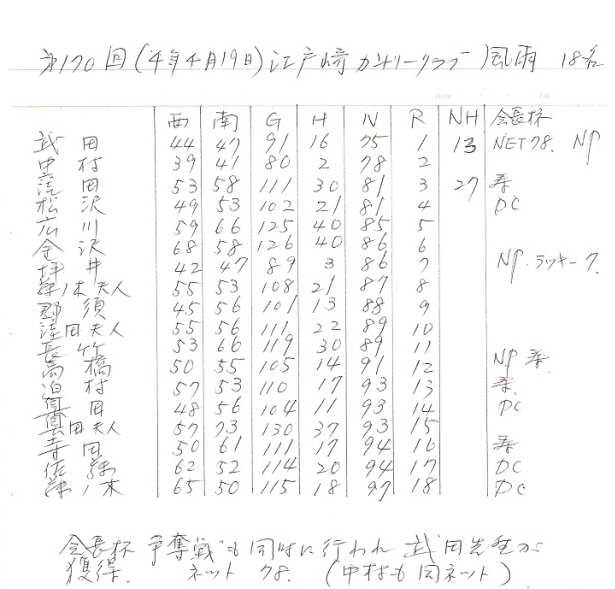 第170回(4年4月19日)江戸崎カントリークラブ 風雨 18名
西 南 G H N R NH 会長杯
武田 44 47 91 16 75 1 13 NET78. NP
中村 39 41 80 2 78 2
窪田 53 58 111 30 81 3 27 寿
松沢 49 53 102 21 81 4 DC
広川 59 66 125 40 85 5
金沢 68 58 126 40 86 6
坪井 42 47 89 3 86 7 NP. ラッキー7
夫人 55 53 108 21 87 8
那須 45 56 101 13 88 9
窪田夫人 55 56 111 22 89 10
長竹 53 66 119 30 89 11
高橋 50 55 105 14 91 12 NP 寿.
泊村 57 53 110 17 93 13 寿.
田 48 56 104 11 93 14 DC
田夫人 57 73 130 37 93 15
寺田 50 61 111 17 94 16 寿
佐藤 62 52 114 20 94 17 DC
65 50 115 18 97 18 DC
会長杯 争奪戦も同時に行われ 武田先生が
獲得. ネット 78. (中村も同ネット)